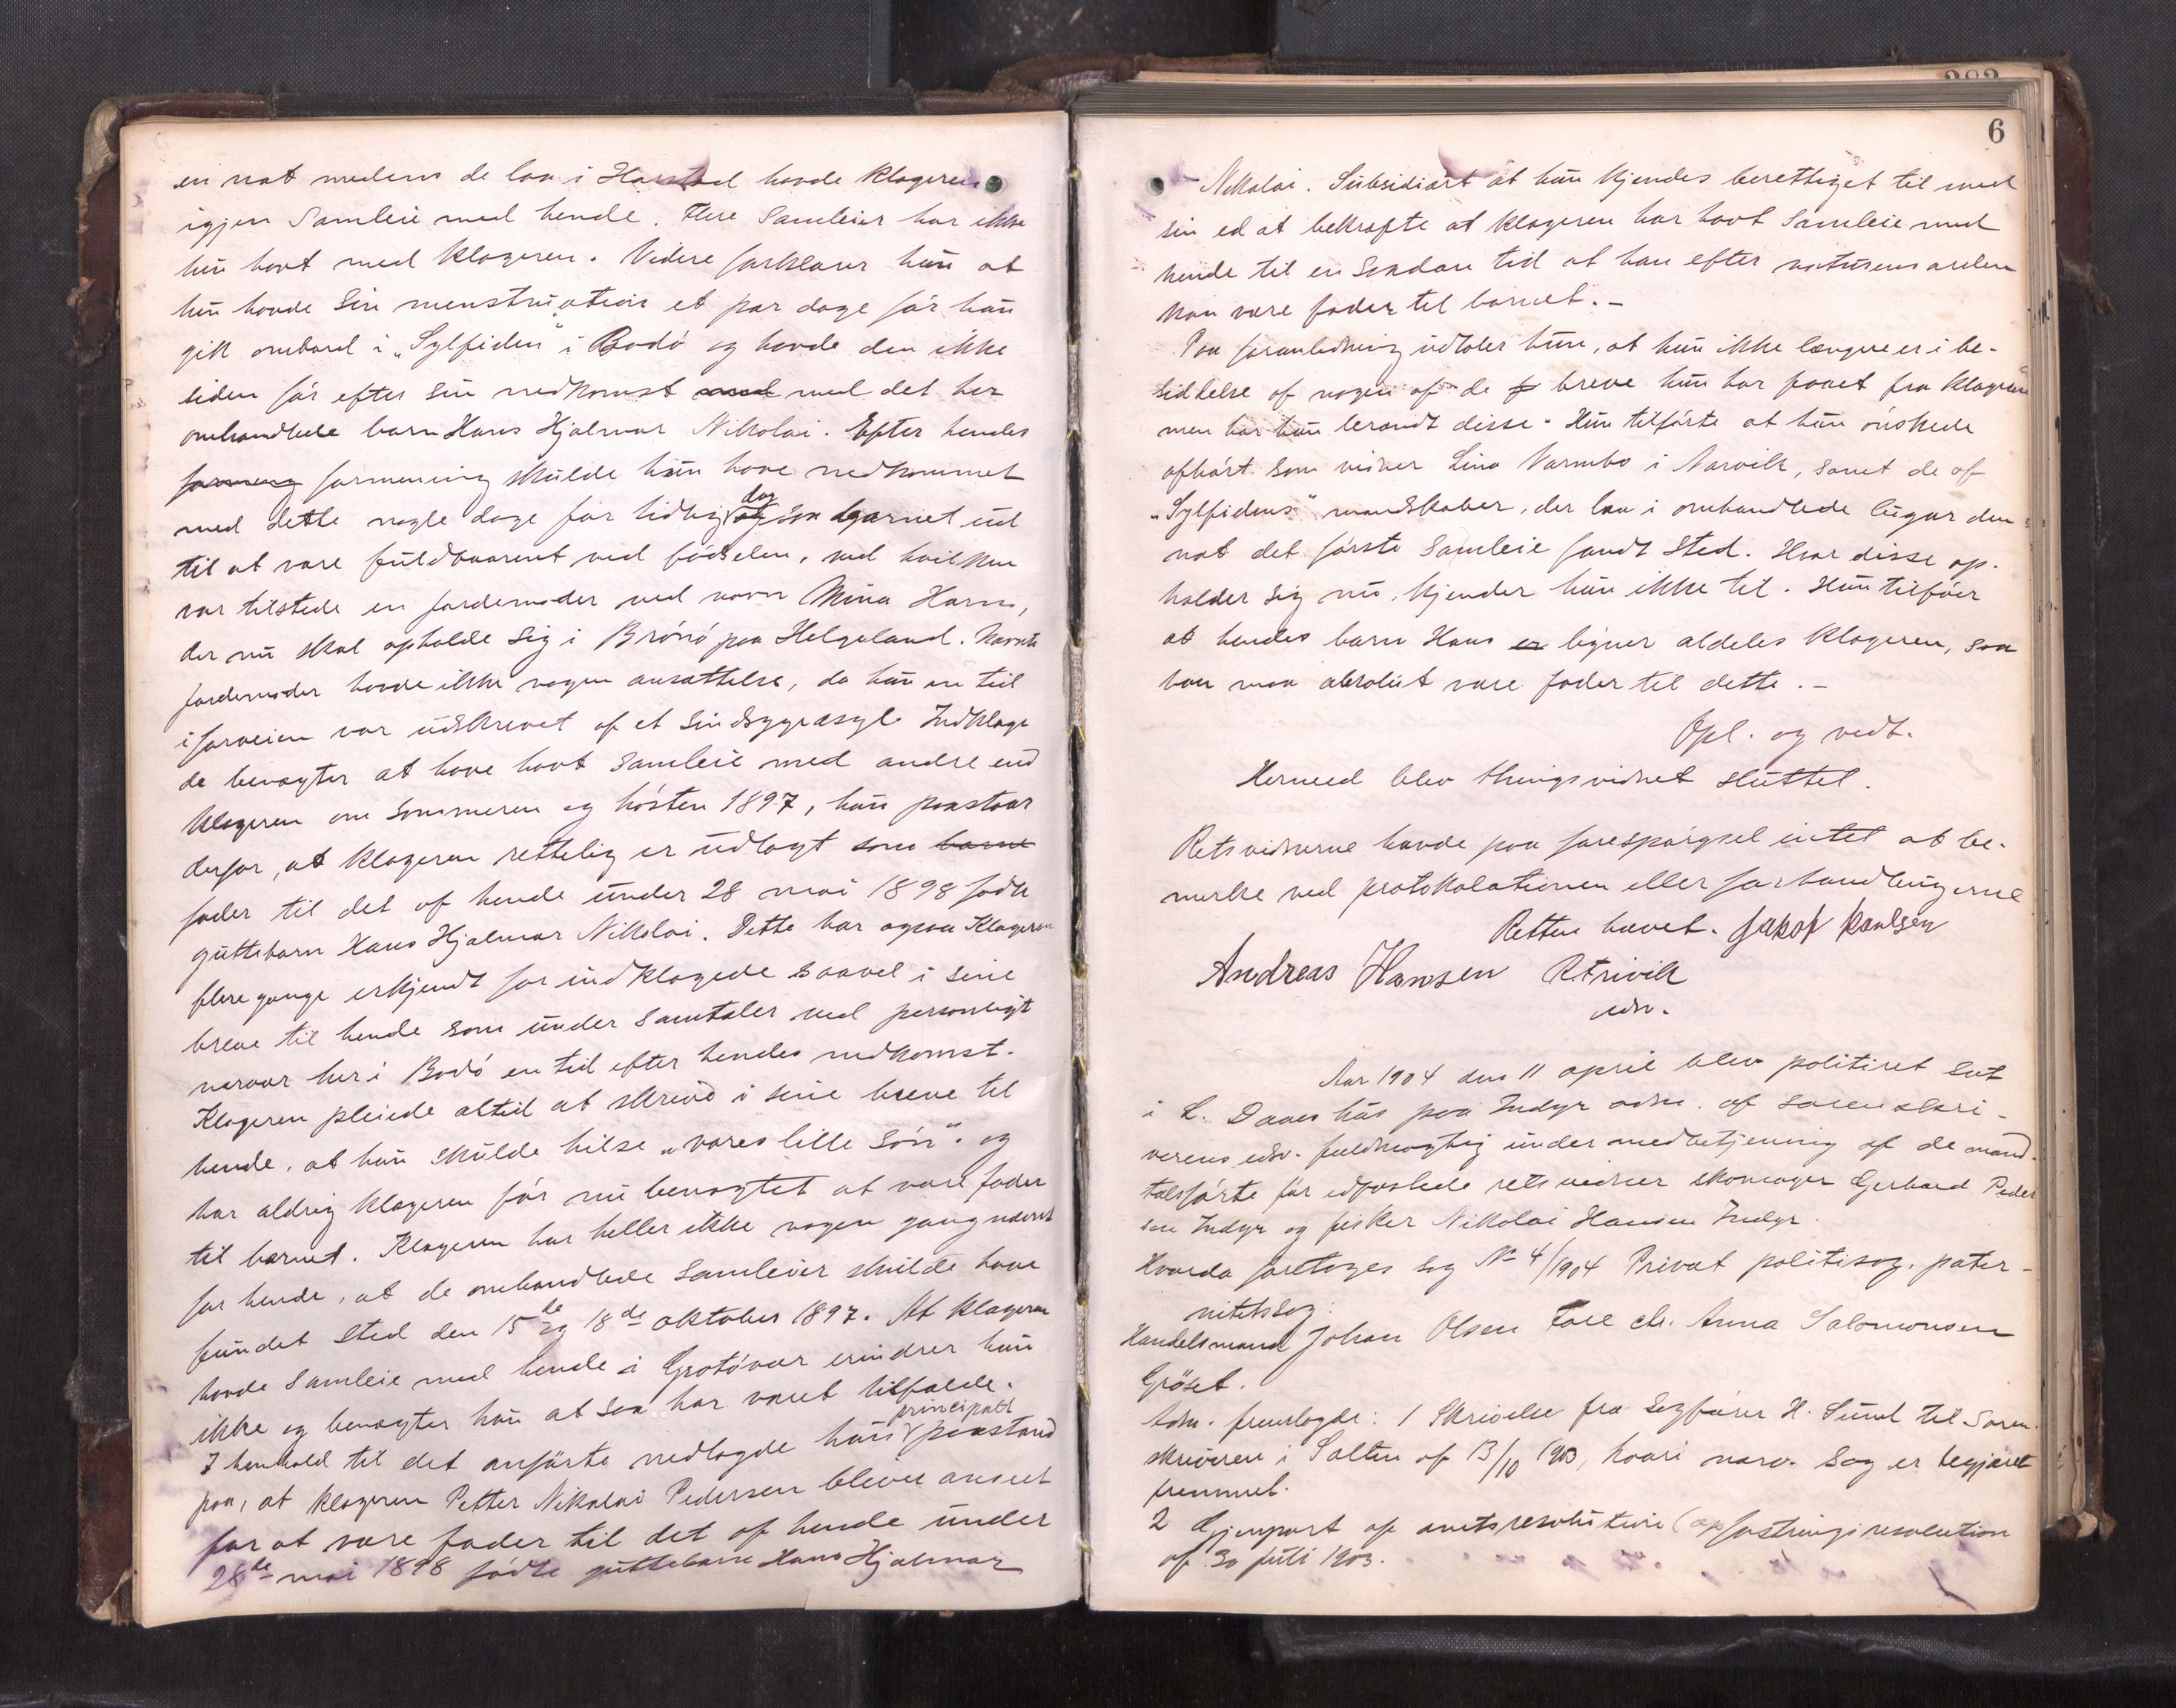 en nat medens de laa i Harstad havde Klageren
igjen Samleie med hende. Flere Samleier har ikke
hun havt med Klageren. Videre forklarer hun at
hun havde sin menstruation et par dage før hun
gik ombord i „Sylfiden” i Bodø og havde den ikke
siden før efter sin nedkomst med det her
omhandlede barn Hans Hjalmar Nikolai. Efter hendes
formening skulde hun have nedkommet
med dette nogle dage for tidlig dog saa barnet ud
til at være fuldbaarent ved fødselen, ved hvilken
var tilstede en jordemoder ved navn Mina Harm,
der nu skal opholde sig i Brønø paa Helgeland. Nævnte
jordemoder havde ikke nogen ansættelse, da hun en tid
i forveien var udskrevet af et Sindsygeasyl. Indklage
de benægter at have havt samleie med andre end
Klageren om Sommeren og høsten 1897, hun paastaar
derfor, at Klageren rettelig er udlagt som barne
fader til det af hende under 28 mai 1898 fødte
guttebarn Hans Hjalmar Nikolai. Dette har ogsaa Klageren
flere gange erkjendt for indklagede saavel i sine
breve til hende som under samtaler ved personligt
nærvær her i Bodø en tid efter hendes nedkomst.
Klageren pleiede altid at skrive i sine breve til
hende, at hun skulde hilse „vores lille Søn”. og
har aldrig klageren før nu benægtet at være fader
til barnet. Klageren har heller ikke nogen gang nævnt
for hende, at de omhandlede Samleier skulde have
fundet Sted den 15de og 18de oktober 1897. At klageren
havde Samleie med hende i Grotøvær erindrer hun
ikke og benægter hun at saa har været tilfælde.
I henhold til det anførte nedlagde hun principalt paastand
paa, at klageren Petter Nikolai Pedersen bliver anseet
for at være fader til det af hende under
28de mai 1898 fødte guttebarn Hans Hjalmar
6
Nikolai. Subsidiært at hun kjendes berettiget til med
sin ed at bekræfte at klageren har havt Samleie med
hende til en saadan tid at han efter naturens orden
kan være fader til barnet.-
Paa foranledning udtaler hun, at hun ikke længere er i be-
siddelse af nogen af de breve hun har faaet fra klageren
men har hun brændt disse. Hun tilførte at hun ønskede
afhørt som vidner Lina Varmbo i Narvik, samt de af
„Sylfidens” mandskaber, der laa i omhandlede lugar den
nat det første Samleie fandt Sted. Hvor disse op-
holder sig nu, kjender hun ikke til. Hun tilføier
at hendes barn Hans er ligner aldeles klageren, saa
han maa absolut være fader til dette.-
Opl. og vedt.
Hermed blev thingsvidnet sluttet.
Retsvidnerne havde paa forespørgsel intet at be-
merke ved protokolationen eller forhandlingerne
Retten hævet. Jakob Paulsen
Andreas Hansen R. Trivik
edsv.
Aar 1904 den 11 april blev politiret sat
i L. Daaes hus paa Indyr adm. af sorenskri-
verens edsv. fuldmægtig under medbetjening af de mand-
talsførte før edfæstede retsvidner skomager Gerhard Peder
sen Indyr og fisker Nikolai Hansen Indyr.
Hvorda foretoges sag No 4/1904 Privat politisag. pater-
nitetssag:
Handelsmand Johan Olsen ctr. Anna Salomonsen
Grøset.
Adm. fremlagde: 1 Skrivelse fra Sagfører H. Sund til Soren-
skriveren i Salten af 13/10 1903, hvori nærv. Sag er begjæret
fremmet.
2 Gjenpart af amtsresolution (opfostringsresolution
af 30 juli 1903.